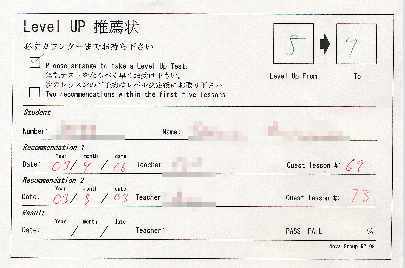 Level UP 推薦状
必ずカウンターまでお持ち下さい
5 7
Please arrange to take a Level Up Test.
Level Up From To
Two recommendations within the first five lessons
Student
Number: Name:
Recommendation 1
Year month date
Date: 03/ 9 / Teacher Guest lesson #: 69
Recommendation 2
Year month date
Date: 03/ / 03 Teacher Guest lesson #: 73
Result
Year month date
Date: / / Teacher: PASS FAIL